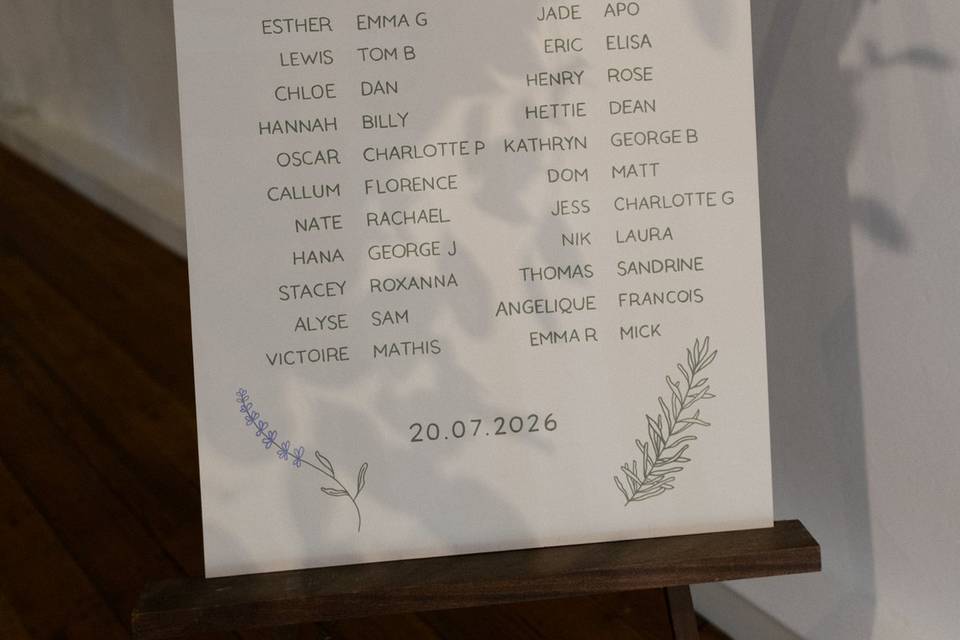 ESTHER EMMA G
LEWIS TOM B
CHLOE DAN
HANNAH BILLY
OSCAR CHARLOTTE P
CALLUM FLORENCE
NATE RACHAEL
HANA GEORGE J
STACEY ROXANNA
ALYSE SAM
VICTOIRE MATHIS
JADE APO
ERIC ELISA
HENRY ROSE
HETTIE DEAN
KATHRYN GEORGE B
DOM MATT
JESS CHARLOTTE G
NIK LAURA
THOMAS SANDRINE
ANGELIQUE FRANCOIS
EMMA R MICK
20.07.2026